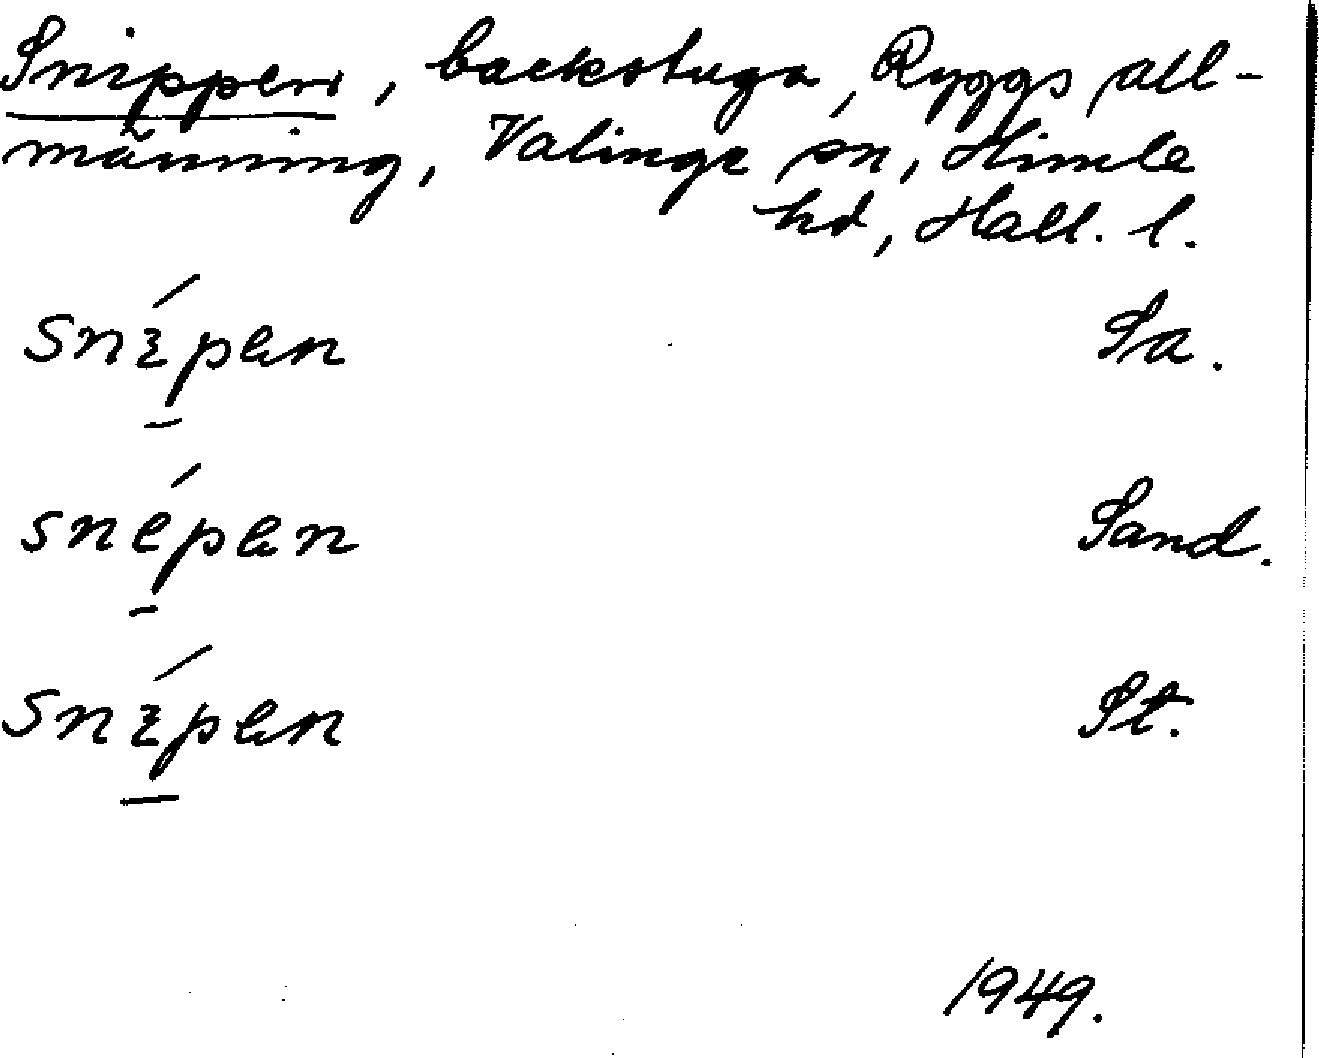 Snippen, backstuga, Ryggs all-
männing, Valinge sn, Himle
hd, Hall. l.
snɪ́pen Sa.
snépen Sand.
snɪ́pen St.
1949.